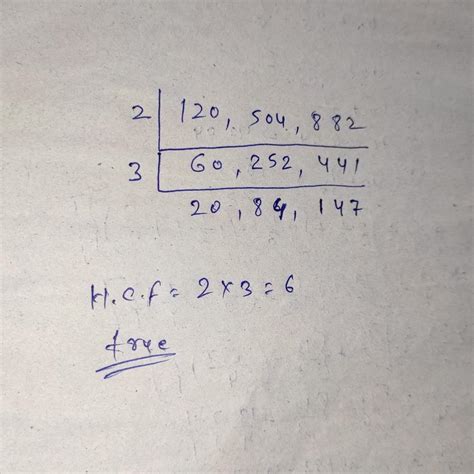 2 | 120, 504, 882
3 | 60, 252, 441
20, 84, 147
H.C.F = 2 × 3 = 6
true